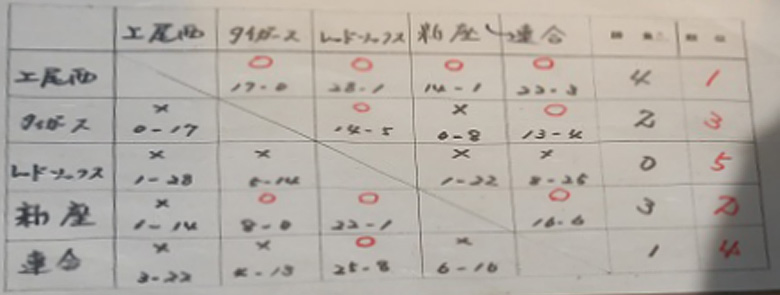 上尾西 タイガース レッドソックス 新座 連合 勝 順位
上尾西 ○ 17-0 ○ 28-1 ○ 14-1 ○ 22-3 4 1
タイガース × 0-17 ○ 14-5 × 0-8 ○ 13-4 2 3
レッドソックス × 1-28 × 5-14 × 1-22 × 8-25 0 5
新座 × 1-14 ○ 8-0 ○ 22-1 ○ 16-6 3 2
連合 × 3-22 × 4-13 ○ 25-8 × 6-16 1 4